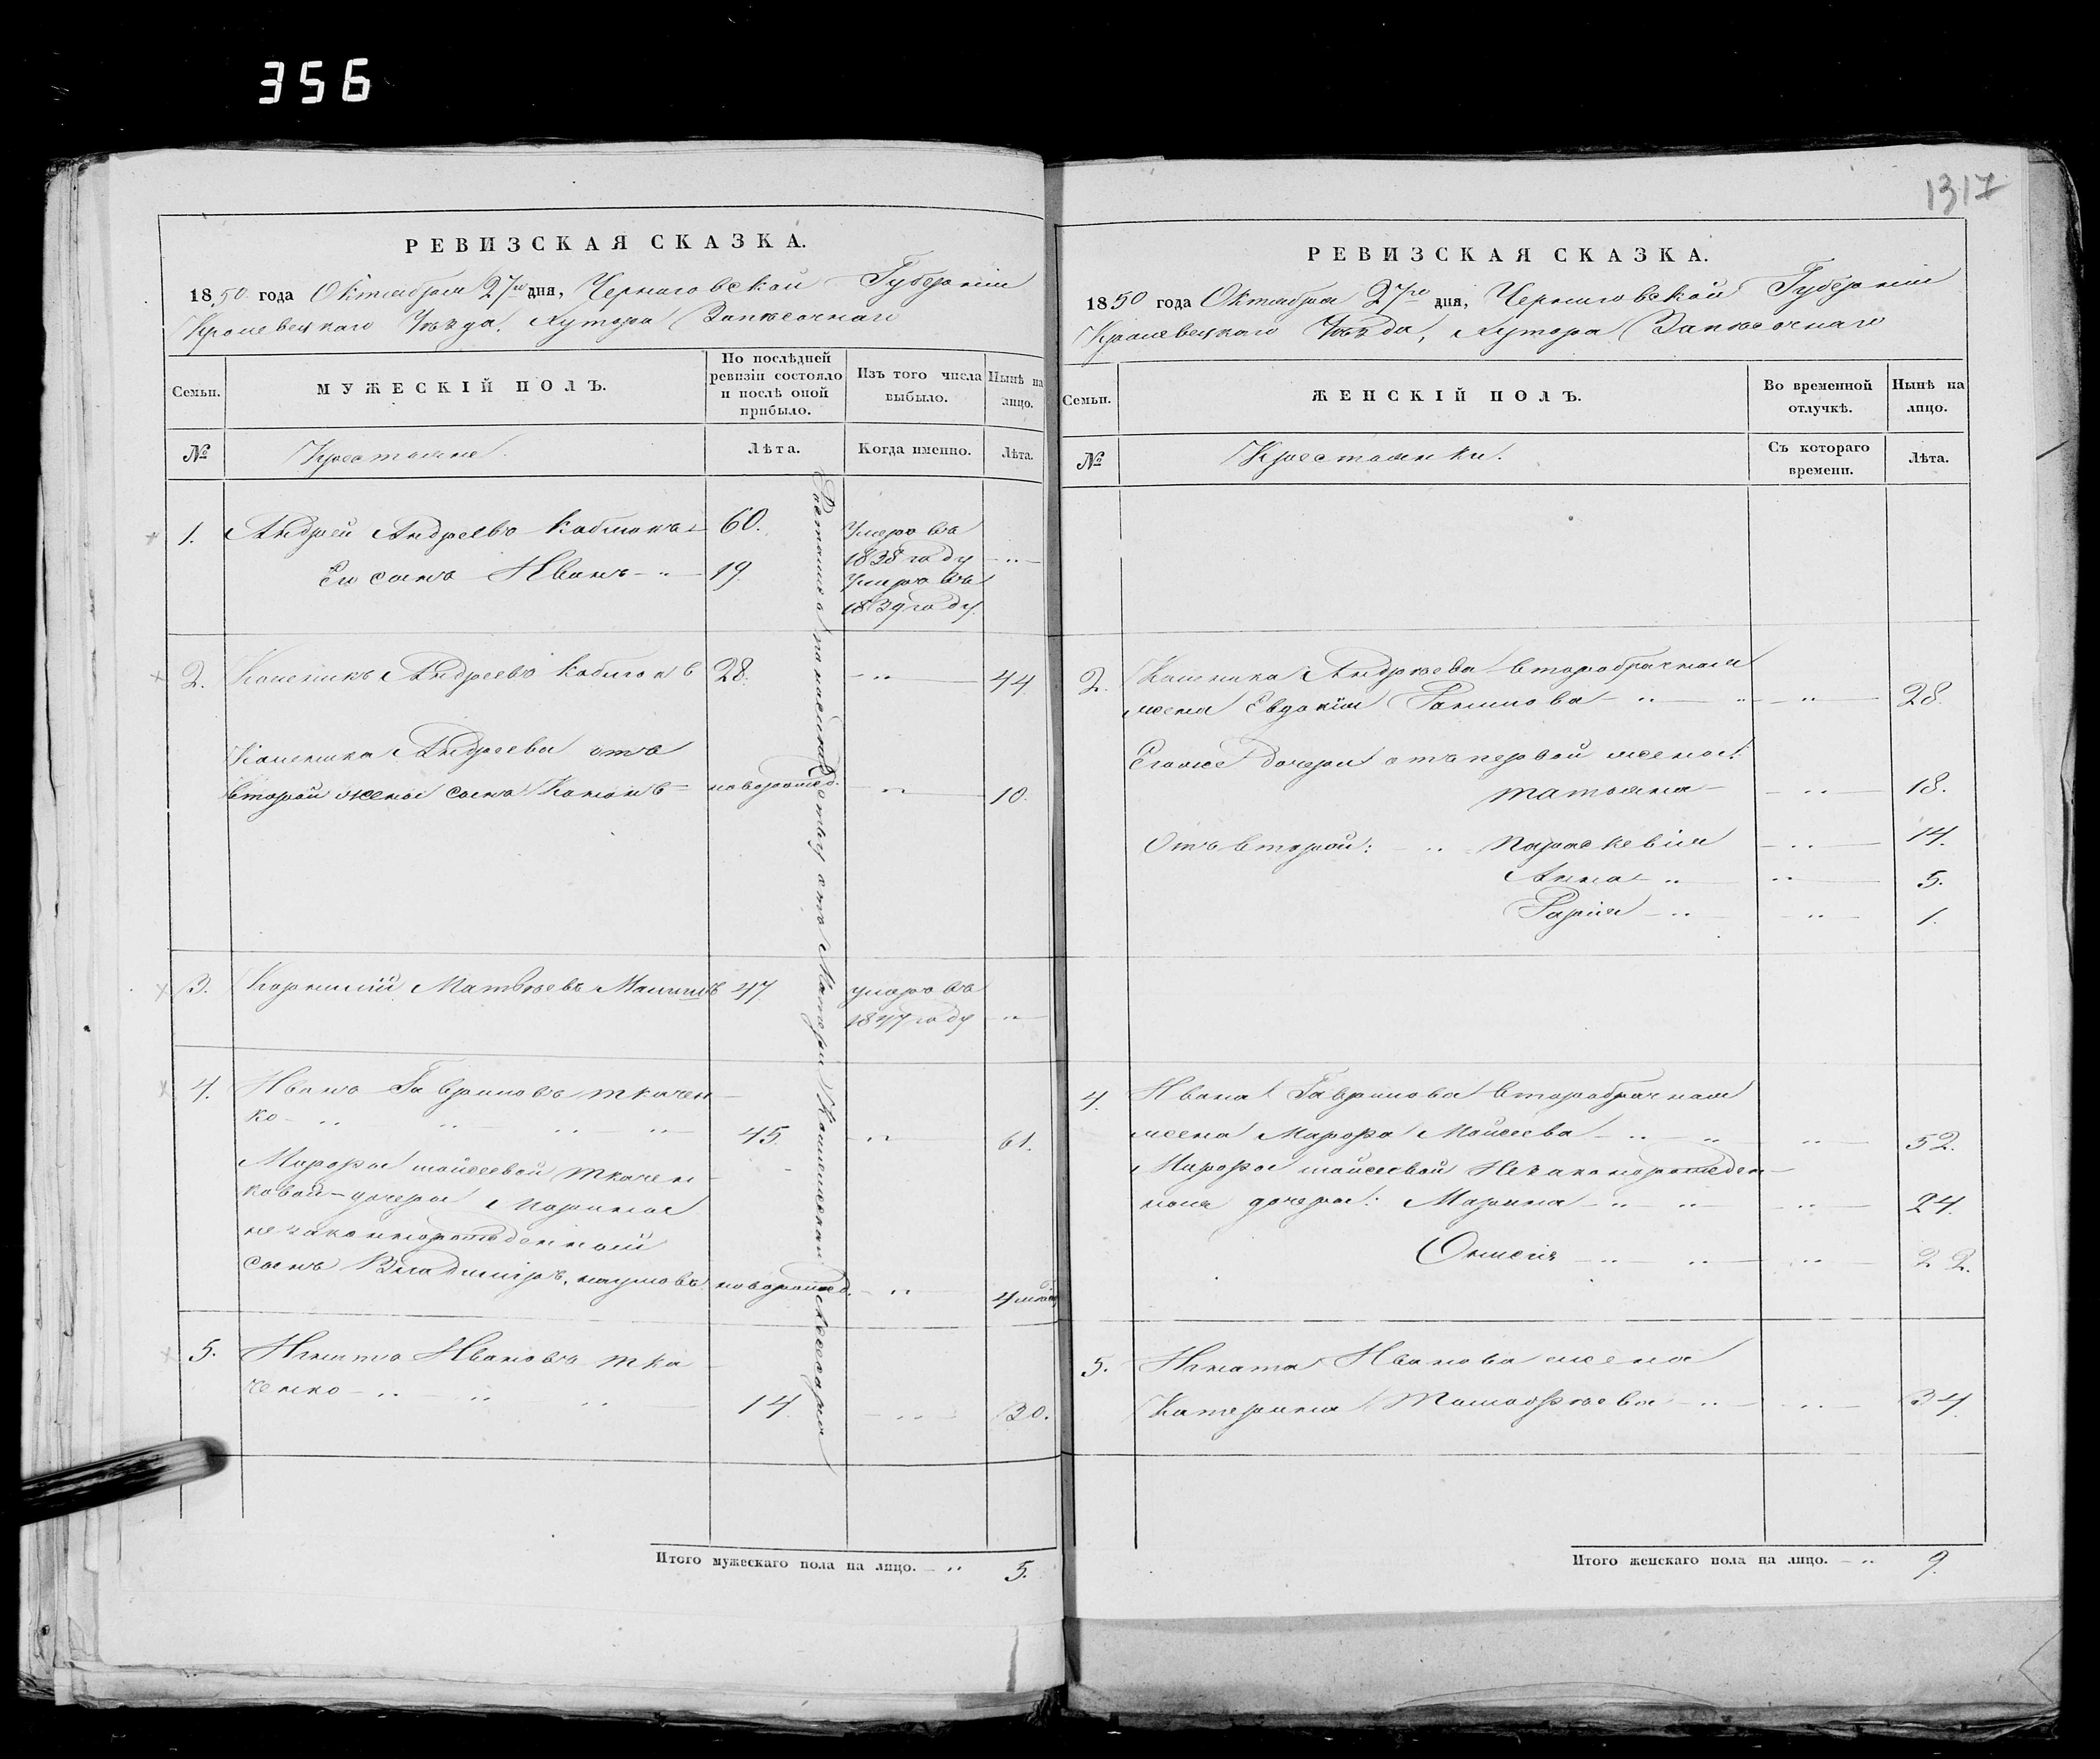 356
1317
РЕВИЗСКАЯ СКАЗКА.
1850 года Октября 27го дня, Черниговской Губерніи
Кролевецкаго Уѣзда, Хутора Запѣсочнаго
Семьи.
МУЖЕСКІЙ ПОЛЪ.
По послѣдней ревизіи состояло и послѣ оной прибыло.
Изъ того числа выбыло.
Нынѣ на лицо.
№
Крестьяне.
Лѣта.
Когда именно.
Лѣта.
1. Андрей Андреевъ 60. Умеръ въ
1838 году
Его сынъ Иванъ 19. Умеръ въ
1839 году.
2. Андреевъ 28. 44
Андреева отъ
второй жены сынъ новорожд. 10.
3. Корнилій Матвѣевъ 47 умеръ въ
1847 году
4. Иванъ Гавриловъ Ткачен
ко 45. 61.
Марфы Мойсеевой Ткачен
ковой дочеры Марины
незаконнорожденный
сынъ Владиміръ, Наумовъ новорожд. 4
5. Игнатъ Ивановъ Тка
ченко 14. 30.
Итого мужескаго пола на лицо. 5.
РЕВИЗСКАЯ СКАЗКА.
1850 года Октября 27го дня, Черниговской Губерніи
Кролевецкаго Уѣзда, Хутора Запѣсочнаго
Семьи.
ЖЕНСКІЙ ПОЛЪ.
Во временной отлучкѣ.
Нынѣ на лицо.
№
Крестьянки.
Съ котораго времени.
Лѣта.
2. Андрѣева второбрачная
жена Евдокія 28.
Егоже дочери отъ первой жены:
Татьяна 18.
Отъ второй: Параскевія 14.
Анна 5.
1.
4. Ивана Гаврилова второбрачная
жена Марфа Мойсеева 52.
Марфы Мойсеевой незаконорожден
ныя дочеры: Марина 24.
22.
5. Игната Иванова жена
Катерина 34.
Итого женскаго пола на лицо. 9.